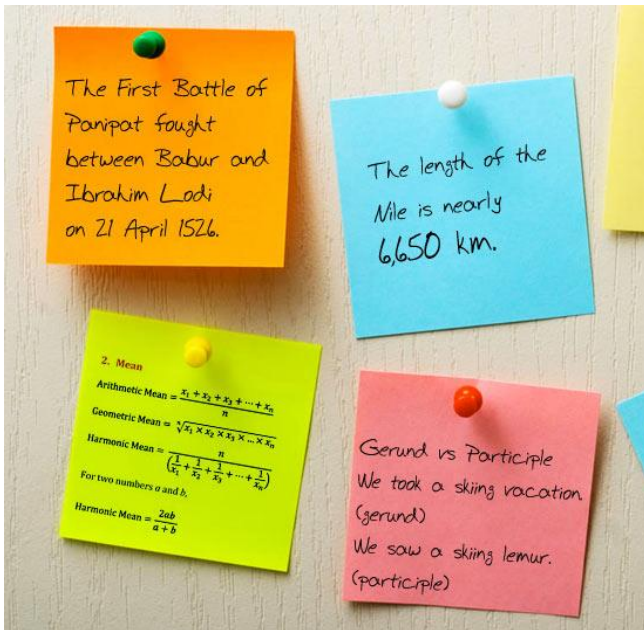 The First Battle of
Panipat fought
between Babur and
Ibrahim Lodi
on 21 April 1526.
The length of the
Nile is nearly
6,650 km.
2. Mean
Arithmetic Mean = (x₁ + x₂ + x₃ + ⋯ + xₙ) / n
Geometric Mean = ⁿ√(x₁ × x₂ × x₃ × … × xₙ)
Harmonic Mean = n / (1/x₁ + 1/x₂ + 1/x₃ + ⋯ + 1/xₙ)
For two numbers a and b,
Harmonic Mean = 2ab / (a + b)
Gerund vs Participle
We took a skiing vacation
(gerund)
We saw a skiing lemur.
(participle)